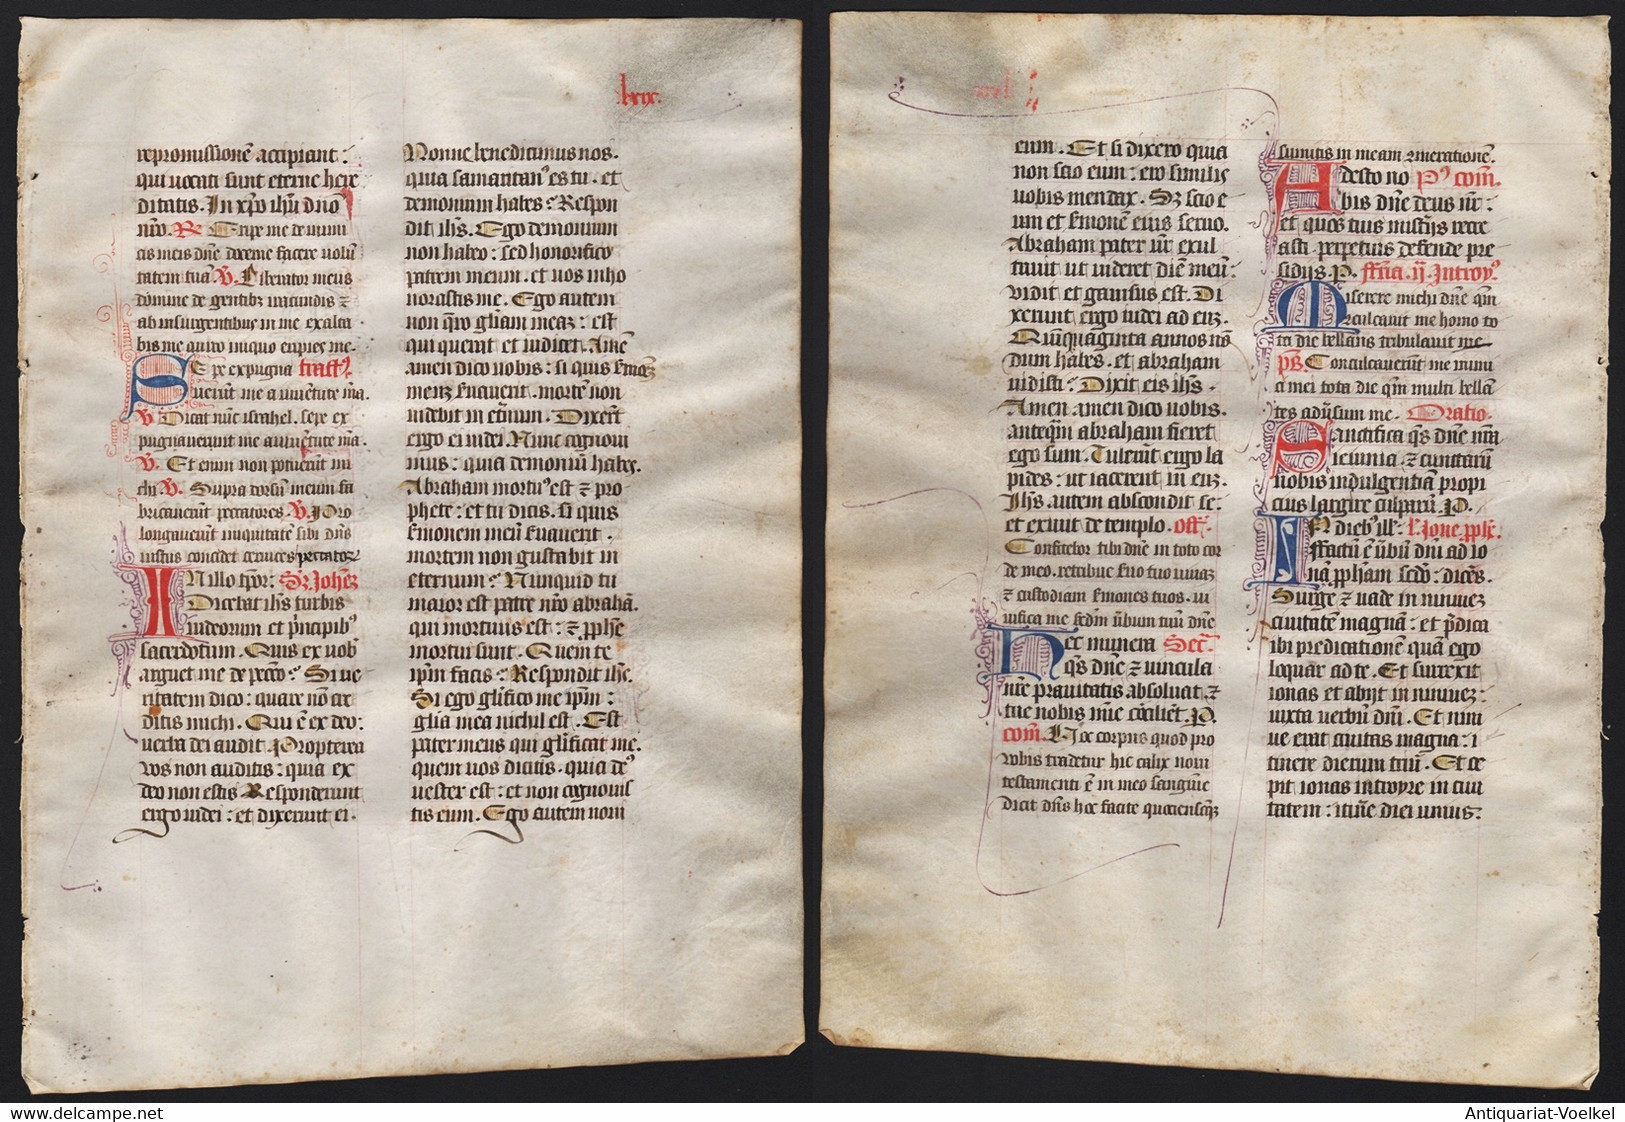 .lxix.
repromissionē accipiant:
qui uocati sunt eterne here
ditatis. In xp̄o ih̄u dn̄o
nr̄o. R Eripe me de inimi
cis meis dn̄e doce me facere volū
tatem tuā. V. Liberator meus
domine de gentibꝫ iracundis ⁊
ab insurgentibus in me exalta
bis me a uiro iniquo eripies me.
Sepe expugna tract9.
uerūt me a iuuētute ma.
V Dicat nūc israhel. sepe ex
pugnauerunt me a iuuētute mā.
V. Et enim non potuerūt mi
chi V. Supra dorsū meum fa
bricauerūt peccatores V. Pro
longauerūt iniquitatē sibi dn̄s
iustus concidet ceruices peccatorꝫ
IN illo tp̄or: Sz. Joh̄ez
Dicebat ih̄s turbis
iudeorum et p̄ncipibꝰ
sacerdotum. Quis ex uob̄
arguet me de pctō: Si ue
ritatem dico: quare nō cre
ditis michi. Qui ē ex deo:
uerba dei audit. Propterea
vos non auditis: quia ex
deo non estis Responderunt
ergo iudei: et dixerunt ei.
Nonne benedicimus nos.
quia samaritanꝰ es tu. et
demonium habes: Respon
dit ih̄s. Ego demonium
non habeo: sed honorifico
patrem meum. et uos inho
norastis me. Ego autem
non q̄ro gl̄iam meaꝫ: est
qui querat et iudicet. Amē
amen dico uobis: si quis s̄monē
meuꝫ s̄uauerit. mortē non
uidebit in et̄num. Dixer̄t
ergo ei iudei. Nunc cognoui
mus: quia demoniū habes.
Abraham mortuꝰ est ⁊ pro
phete: et tu dicis. si quis
s̄monem meū s̄uauerit.
mortem non gustabit in
eternum: Nunquid tu
maior est patre nr̄o abrahā.
qui mortuus est: ⁊ pp̄he
mortui sunt. Quem te
ip̄m facis: Respondit ih̄c.
Si ego gl̄ifico me ip̄m:
gl̄ia mea nichil est. Est
pater meus qui gl̄ificat me.
quem uos dicitis. quia dēꝰ
uester est: et non cognouis
tis eum. Ego autem noui
eum. Et si dixero quia
non scio eum: ero similis
uobis mendax. Sz scio e
um et s̄monē eius seruo.
Abraham pater ur̄ exul
tauit ut uideret diē meū:
vidit et gauisus est. Di
xerunt ergo iudei ad euꝫ.
Quīquaginta annos nō
dum habes. et abraham
uidisti: Dixit eis ih̄s.
Amen amen dico uobis.
anteq̄m abraham fieret
ego sum. Tulerūt ergo la
pides: ut iacerent in euꝫ.
Ih̄s autem abscondit se:
et exiuit de templo. off̄.
Confitebor tibi dn̄e in toto cor
de meo. retribue s̄uo tuo uiuaꝫ
⁊ custodiam s̄mones tuos. ui
uifica me sedm̄ ūbum tuū dn̄e
Hec munera Secr̄.
q̄s dn̄e ⁊ uincula
nr̄e prauitatis absoluāt. ⁊
tue nobis mīe cōciliēt. P.
com̄. Hoc corpus quod pro
vobis tradetur hic calix noui
testamenti ē in meo sanguīe
dicit dn̄s hoc facite quociensq̄ꝫ
sumitis in meam ꝯmeratiōnē.
Adesto no P9 com̄.
bis dn̄e deus nr̄:
et quos tuis misterijs recre
asti. perpetuis defende pre
sidijs. P. ffr̄ia. ij. Introyꝰ
Miserere michi dn̄e qm̄
ꝯculcauit me homo to
ta die bellans tribulauit me
ps. Conculcauerūt me inimi
ci mei tota die qm̄ multi bellā
tes adūsum me. Oratio.
Sanctifica q̄s dn̄e nr̄a
ieiunia ⁊ cunctarū
nobis indulgentiā propi
cius largire culparū. P.
In diebꝰ ill̄. l̄. Jone. pph̄e.
ffactū ē ūbū dn̄i ad io
nā pp̄ham sc̄do: dicēs.
Surge ⁊ uade in niniueꝫ
ciuitatē magnā: et p̄dica
ibi predicationē quā ego
loquar ad te. Et surrexit
ionas et abijt in niniueꝫ:
iuxta verbū dn̄i. Et nini
ue erat ciuitas magna: i
tinere dierum triū. Et ce
pit ionas introyre in ciui
tatem: itinē diei unius:
Antiquariat-Voelkel